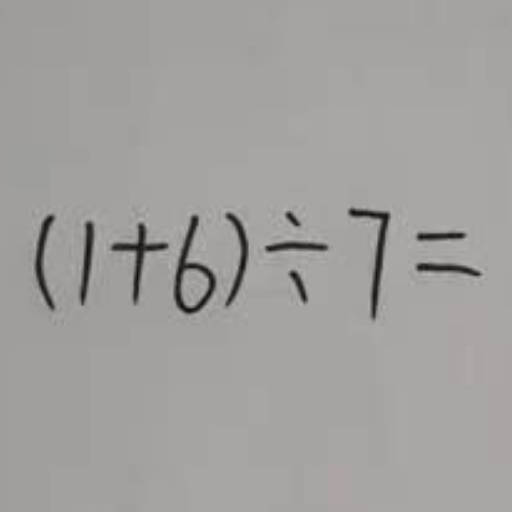 (1+6)÷7=